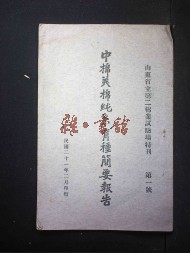 山東省立第二棉業試驗場特刊 第一號
中棉美棉純系育種簡要報告
民國二十一年二月